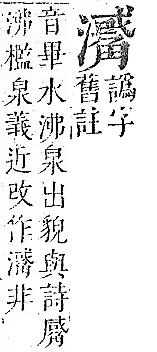 譌字
舊註
音畢水沸泉出貌與詩觱
沸檻泉義近改作非